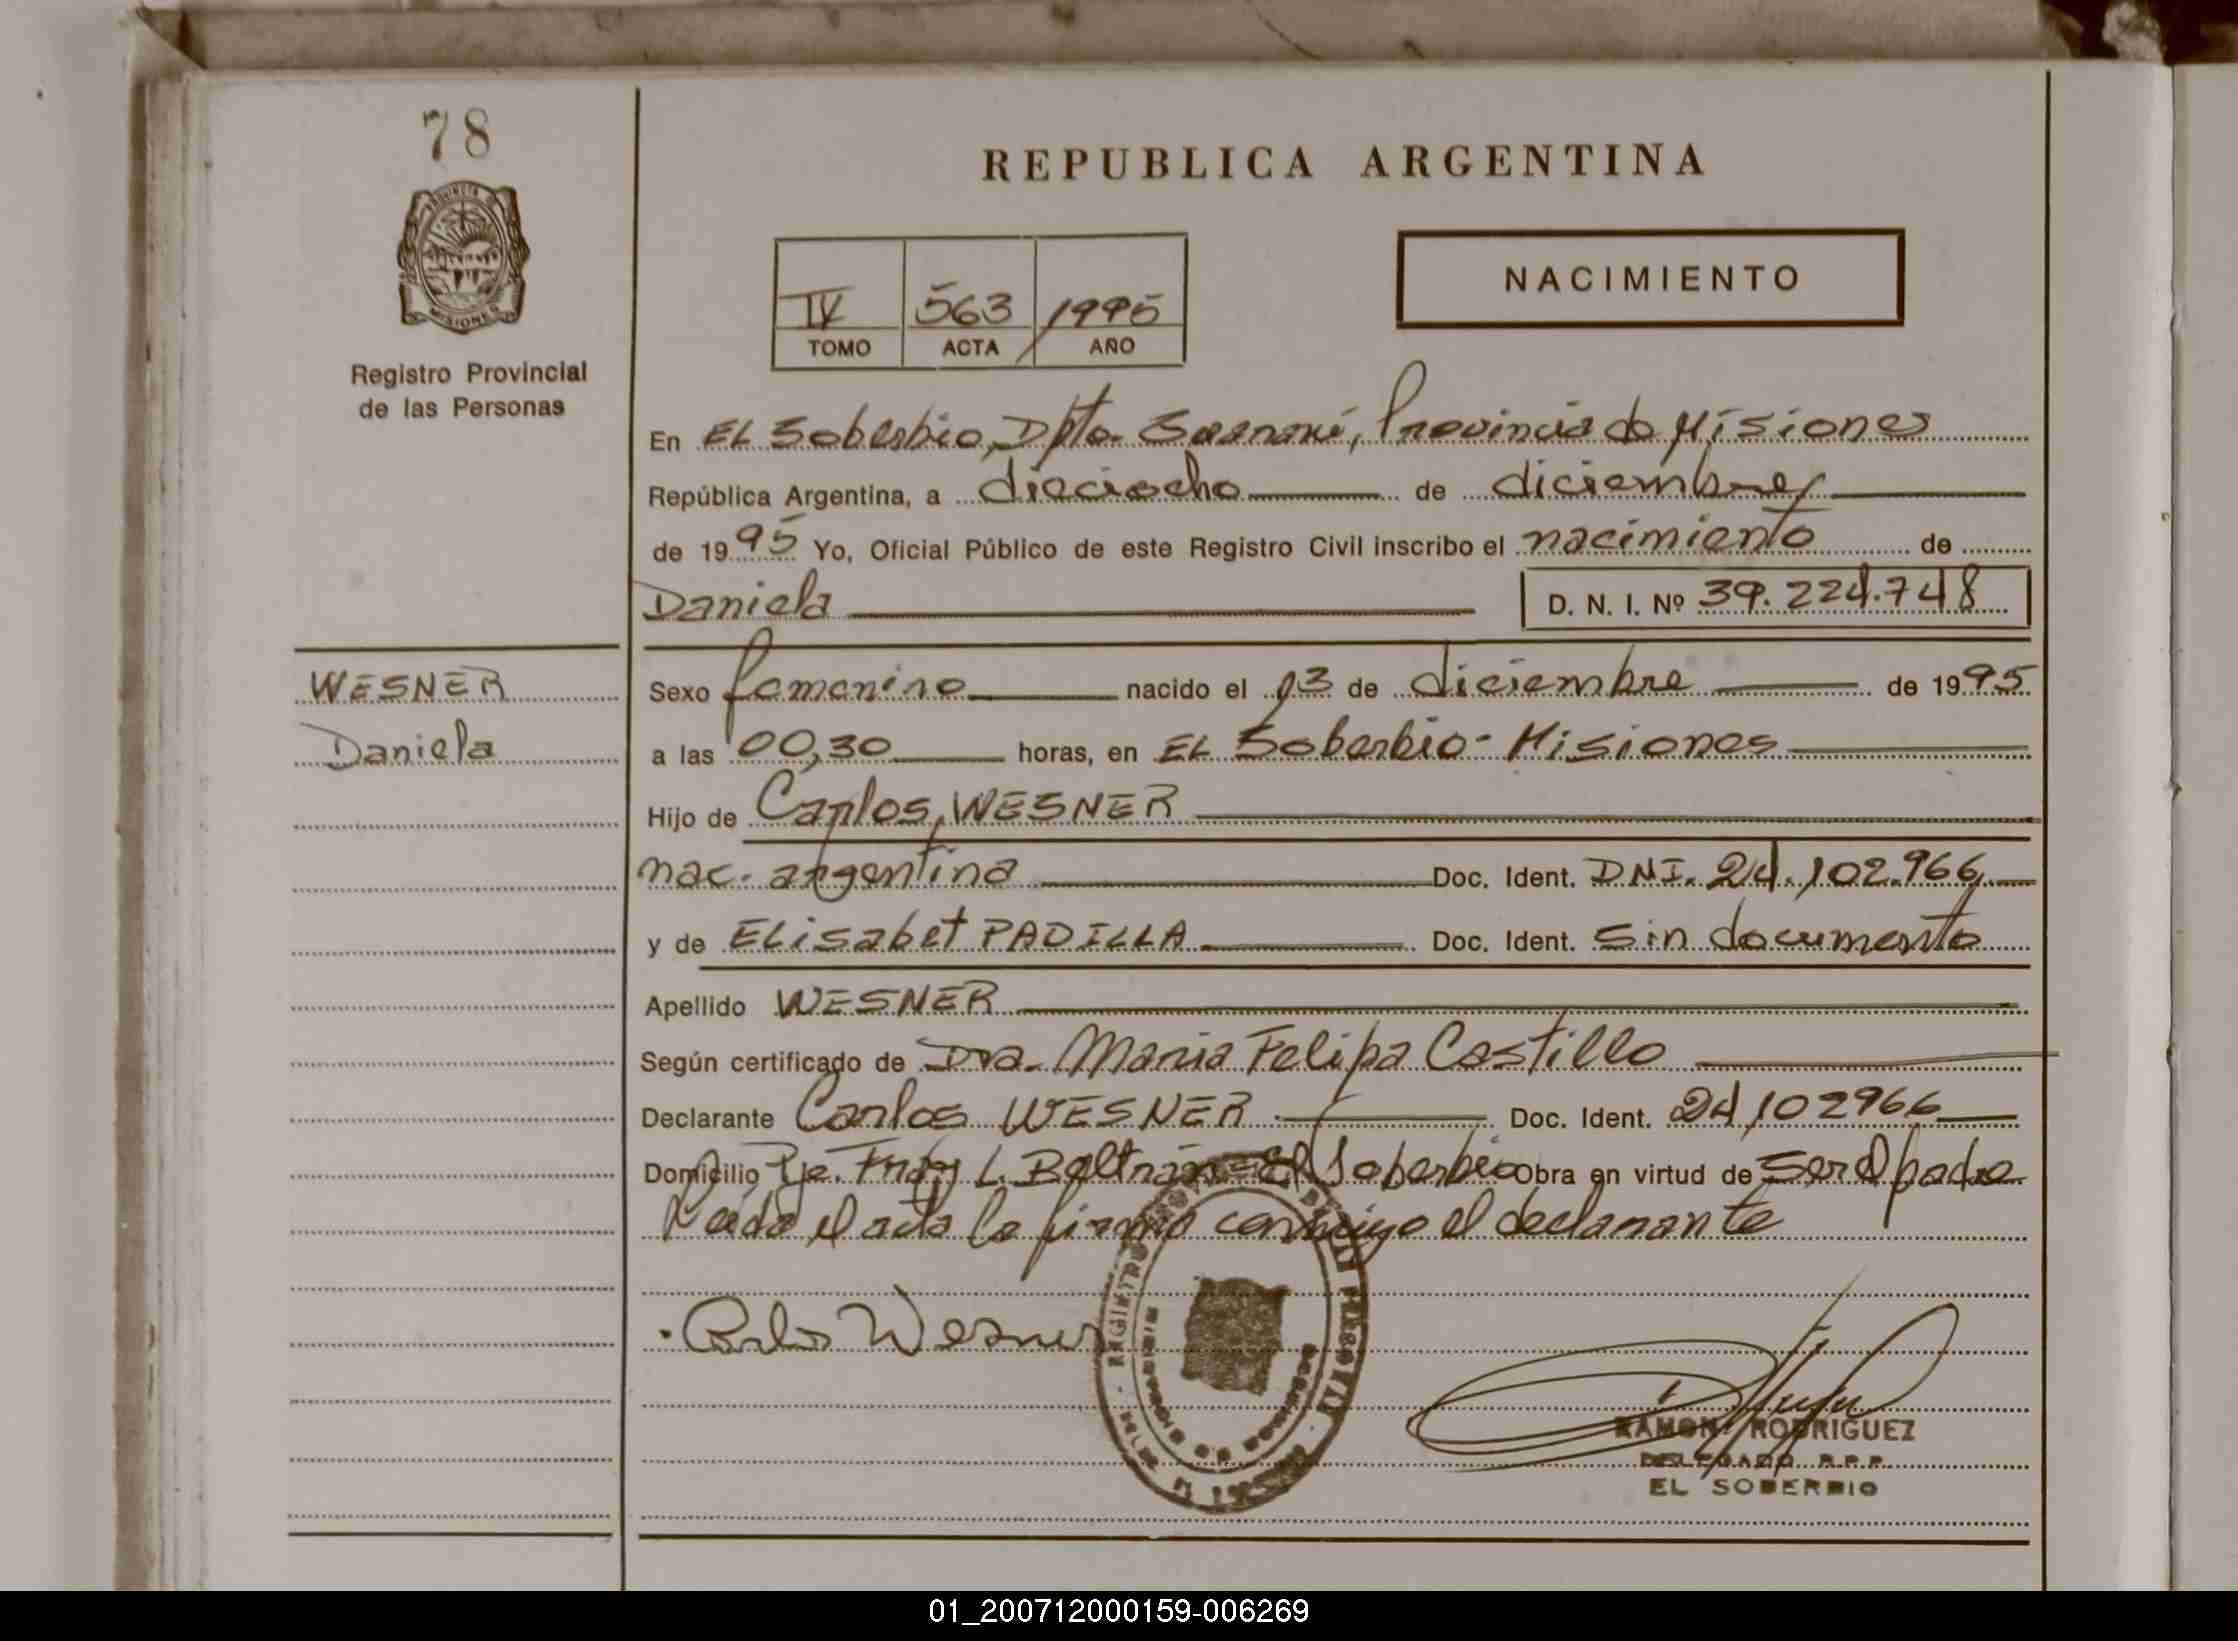 78
PROVINCIA DE
MISIONES
Registro Provincial
de las Personas
REPUBLICA ARGENTINA
IV 563 1995
TOMO ACTA AÑO
NACIMIENTO
En EL Soberbio, Dpto. Guaraní, Provincia de Misiones
República Argentina, a dieciocho de diciembre
de 1995 Yo, Oficial Público de este Registro Civil inscribo el nacimiento de
Daniela D. N. I. Nº 39.224.748
WESNER
Daniela
Sexo femenino nacido el 13 de diciembre de 1995
a las 00,30 horas, en EL Soberbio - Misiones
Hijo de Carlos, WESNER
nac. argentina Doc. Ident. DNI. 24.102.966
y de ELisabet PADILLA Doc. Ident. sin documento
Apellido WESNER
Según certificado de Dra. Maria Felipa Castillo
Declarante Carlos WESNER Doc. Ident. 24102966
Domicilio Pje. Fray L. Beltrán - El Soberbio Obra en virtud de ser el padre
Leida el acta la firma conmigo el declarante
Carlos Wesner
RAMON RODRIGUEZ
DELEGADO R.P.P.
EL SOBERBIO
01_200712000159-006269